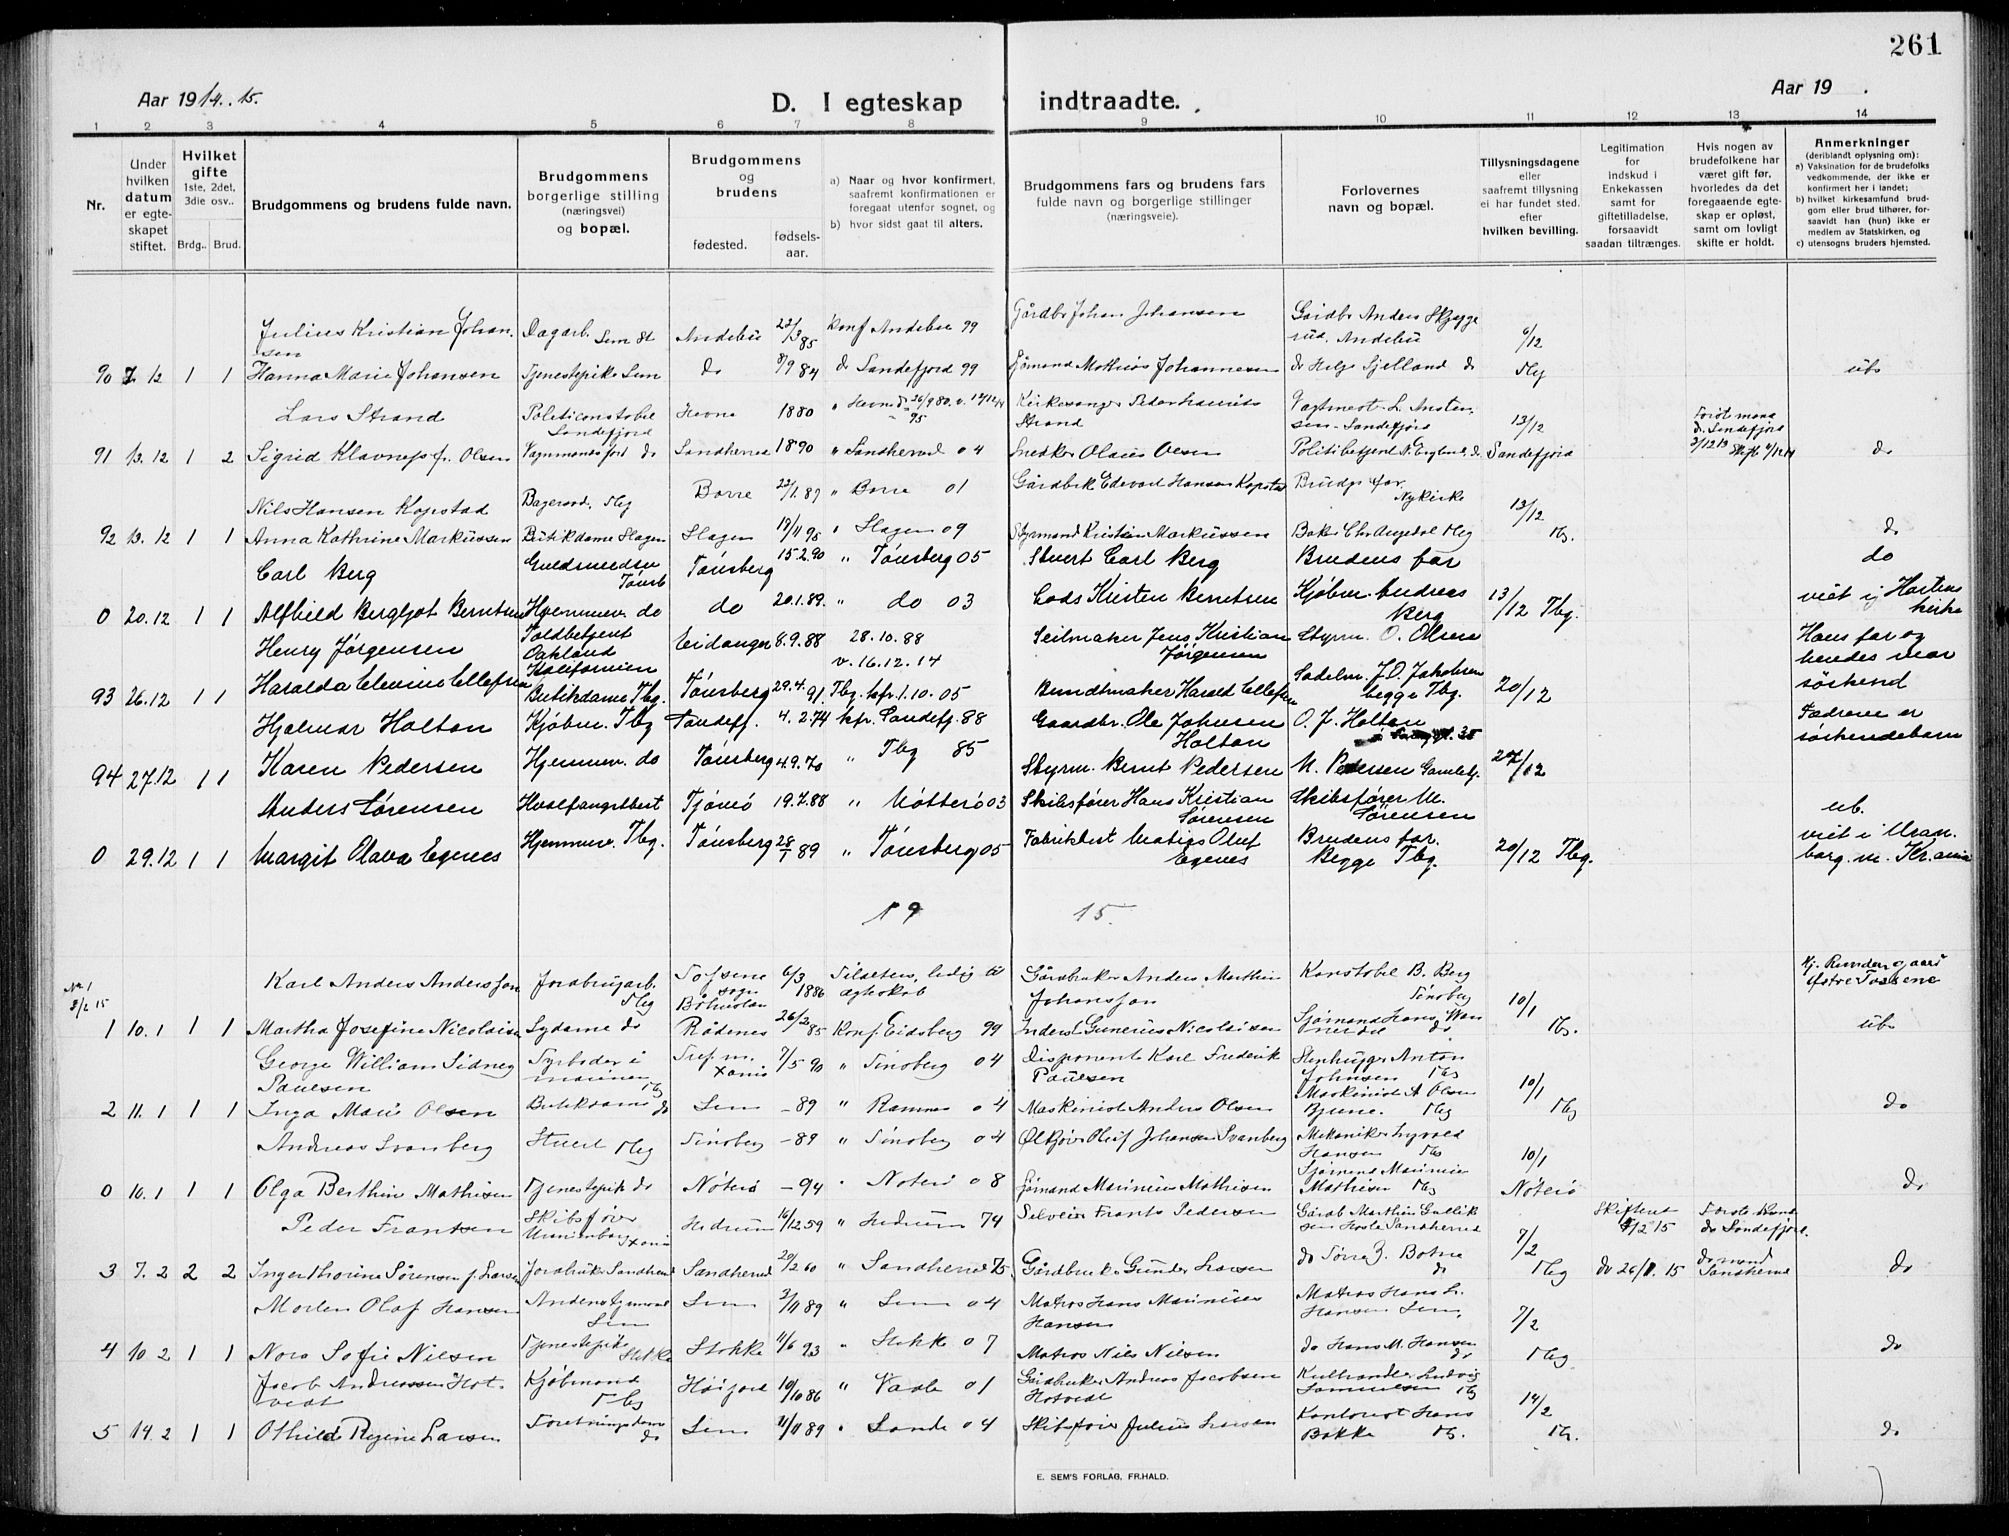 261
Aar 1914. 15.
D. I egteskap indtraadte.
Aar 19 .
1 2 3 4 5 6 7 8 9 10 11 12 13 14
Nr.
Under hvilken datum er egteskapet stiftet.
Hvilket gifte 1ste, 2det, 3die osv..
Brdg.. Brud.
Brudgommens og brudens fulde navn.
Brudgommens borgerlige stilling (næringsvei) og bopæl.
Brudgommens og brudens
fødested.
fødsels-aar.
a) Naar og hvor konfirmert, saafremt konfirmationen er foregaat utenfor sognet, og
b) hvor sidst gaat til alters.
Brudgommens fars og brudens fars fulde navn og borgerlige stillinger (næringsveie).
Forlovernes navn og bopæl.
Tillysningsdagene eller saafremt tillysning ei har fundet sted. efter hvilken bevilling.
Legitimation for indskud i Enkekassen samt for giftetilladelse, forsaavidt saadan tiltrænges.
Hvis nogen av brudefolkene har været gift før, hvorledes da det foregaaende egteskap er opløst, samt om lovligt skifte er holdt.
Anmerkninger (deriblandt oplysning om):
a) Vaksination for de brudefolks vedkommende, der ikke er konfirmert her i landet;
b) hvilket kirkesamfund brudgom eller brud tilhører, forsaavidt han (hun) ikke er medlem av Statskirken, og
c) utensogns bruders hjemsted.
Julius Kristian Johansen Dagarb. Sem St Andebu 22/3 85 Konf Andebu 99 Gårdbr Johan Johansen Gårdbr Anders Skjeggerud, Andebu 6/12
90 7 12 1 1 Hanna Marie Johansen Tjenestepike Sem do 8/9 84 do Sandefjord 99 Sjömand Mathias Johannesen do Helge Gjelland do Tbg
Lars Strand Politiconstabel Sandefjord Hevne 1880 Kirkesanger Peder Strand Sandefjord 13/12
91 13. 12 1 2 Sigrid Klavnes f. Olsen do Sandherred 1890 " Sandherred 04 Snedker Olaus Olsen Politibetjent Sandefjord do
Nils Hansen Kopstad Bagersv. Tbg Borre 22/1. 87 " Borre 01 Gårdbrk Edvard Hansen Kopstad Brudgs far. Nykirke 13/12
92 13. 12 1 1 Anna Kathrine Markussen Butikdame Slagen Slagen " Slagen 09 Styrmand Kristian Markussen Baker Chr Tbg Tbg. do
Carl Berg Guldsmedsv Tönsb Tönsberg 15 2. 90 " Tönsberg 05 Stuert Carl Berg Brudens far do
0 20. 12 1 1 Alfhild Bergljot Berntsen Hjemmev. do do 20. 1. 89. " do 03 Lods Kristen Berntsen Kjöbm. Andreas Berg 13/12 Tbg. viet i Hortens kirke
Henry Jørgensen Toldbetjent Oakland Kalifornien Eidanger 8. 9. 88 28. 10. 88 v. 16. 12. 14 Seilmaker Jens Kristian Jørgensen Styrm. O. Olsen Hans far og hendes mor søskend
93 26. 12 1 1 Haralda Elevine Ellefsen Butikdame Tbg. Tönsberg 29. 4. 91. Tbg. kfr. 1. 10. 05 Bundtmaker Harald Ellefsen Sadelm. J. D. Jakobsen begge Tbg. 20/12
Hjalmar Holtan Kjöbm. Tbg Sandefj. 4. 2. 74 kfr. Sandefj. 88 Gaardbr. Ole Johnsen Holtan O. J. Holtan Fædrene er söskendebarn
94 27. 12 1 1 Karen Pedersen Hjemmev. do Tönsberg 4. 9. 70 " Tbg 85 Styrm. Bernt Pedersen M. Pedersen 27/12
Anders Sørensen Hvalfangstbest Tjömö 19. 7. 88 " Nötterö 03 Skibsfører Hans Kristian Sørensen Skibsfører M. Sørensen ub.
0 29. 12 1 1 Margit Olava Egenes Hjemmev. Tbg. Tönsberg 28/1 89 " Tönsberg 05 Fabrikbest Mathias Oluf Egenes Brudens far. Begge Tbg. 20/12 Tbg. viet i Uranienborg m. Kr.ania
19 15.
Nr. 1 8/2 15
Karl Anders Andersson Jordbrugarb. Tbg sogn Bohuslän 6/3 1886 ledig til ägteskab Gårdbruker Anders Marthin Johansson Konstabel B. Berg Tönsberg 10/1
1 10. 1 1 1 Martha Josefine Nicolaisen Sydame do Rødenes 26/2 85 Konf. Eidsberg 99 Inderst Gunerius Nicolaisen Sjömand Hans do Tbg. ub
George William Sidney Paulsen Fyrböder i marinen Tbg Xania 7/5 90 " Tönsberg 04 Disponent Karl Frederik Paulsen Stenhugger Anton Johnsen Tbg 10/1
2 11. 1 1 1 Inga Marie Olsen Butikdame do Sem – 89 " Ramnes 04 Maskinist Anders Olsen Maskinist A Olsen Bjune. Tbg Tbg do
Andreas Svanberg Stuert Tbg Tönsberg – 89 " Tönsberg 04 Oluf Johansen Svanberg Mekaniker Hansen Tbg 10/1
0 10. 1 1 1 Olga Berthine Mathisen Tjenestepik do Nöterö – 94 " Noterö 08 Sjömand Marinius Mathisen Sjömand Marinius Mathisen Tbg Nöterö do
Peder Frantsen Skibsfører Uranienborg Xania Hedrum 16/12 59 " Hedrum 74 Selveier Frants Pedersen Gårdb Marthin Gulliksen Sandherred 7/2 Skifteret 4/2 15 Første Kone do Sandefjord.
3 7. 2 2 2 Inger Thorine Sørensen f. Larsen Jordbruker Sandherred Sandherred 20/2 60 " Sandherred 75 Gårdbruker Gunder Larsen do do Tbg do 26/1. 15 do mand Sandherred do
Morten Olaf Hansen Sem Sem 2/11 89 " Sem 04 Matros Hans Marinius Hansen Matros Hans L. Hansen Sem. 7/2
4 10. 2 1 1 Nora Sofie Nilsen Tjenestepike Stokke Stokke 11/6 93 " Stokke 07 Matros Nils Nilsen do Hans M. Hansen do Tbg do
Jacob Andreassen Hotvedt Kjöbmand Tbg Höijord 10/10 86 " Vaale 01 Gårdbruker Andreas Jacobsen Hotvedt Ludvig Samuelsen Tbg 14/2
5 14. 2 1 1 Othilde Regine Larsen Forretningsdame do Sem 11/11 89 " Sande 04 Skibsfører Julius Larsen Kontorist Hans Bakke Tbg. Tbg. do
E. SEM'S FORLAG, FR.HALD.